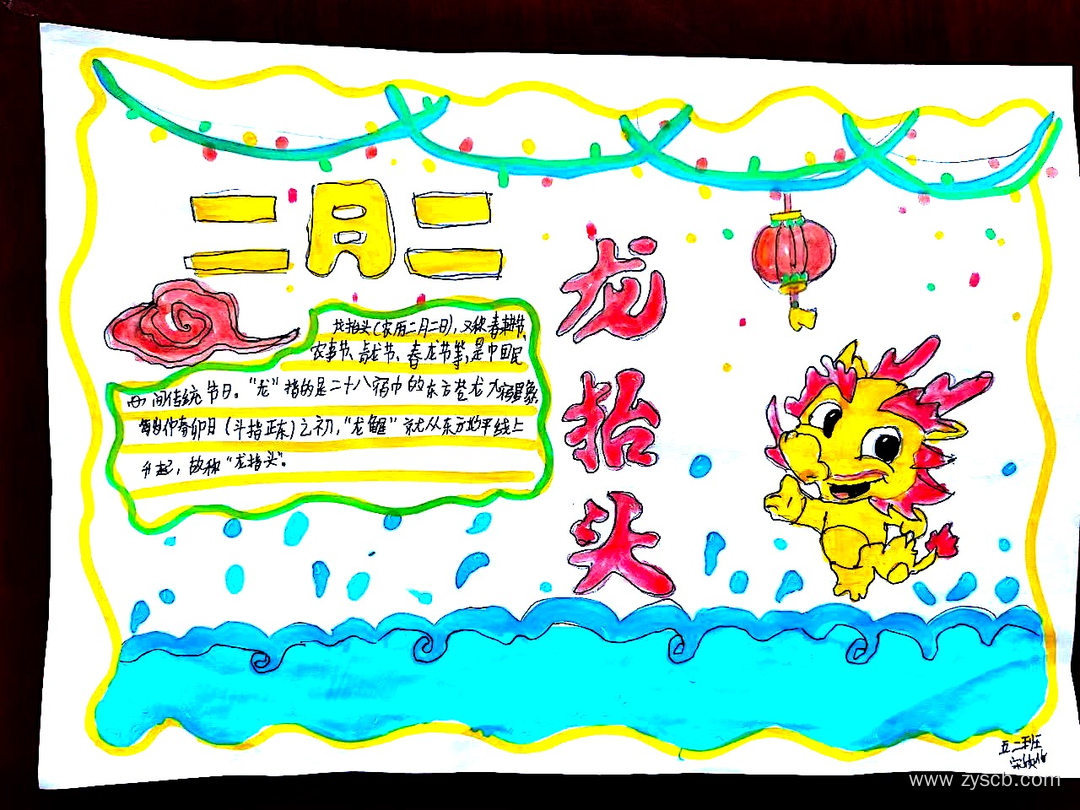 二月二
龙抬头
龙抬头(农历二月二日),又称春耕节、
农事节、青龙节、春龙节等,是中国民
间传统节日。“龙”指的是二十八宿中的东方苍龙七宿星象,
每岁仲春卯月(斗指正东)之初,“龙角星”就从东方地平线上
升起,故称“龙抬头”。
五二班
www.zyscb.com